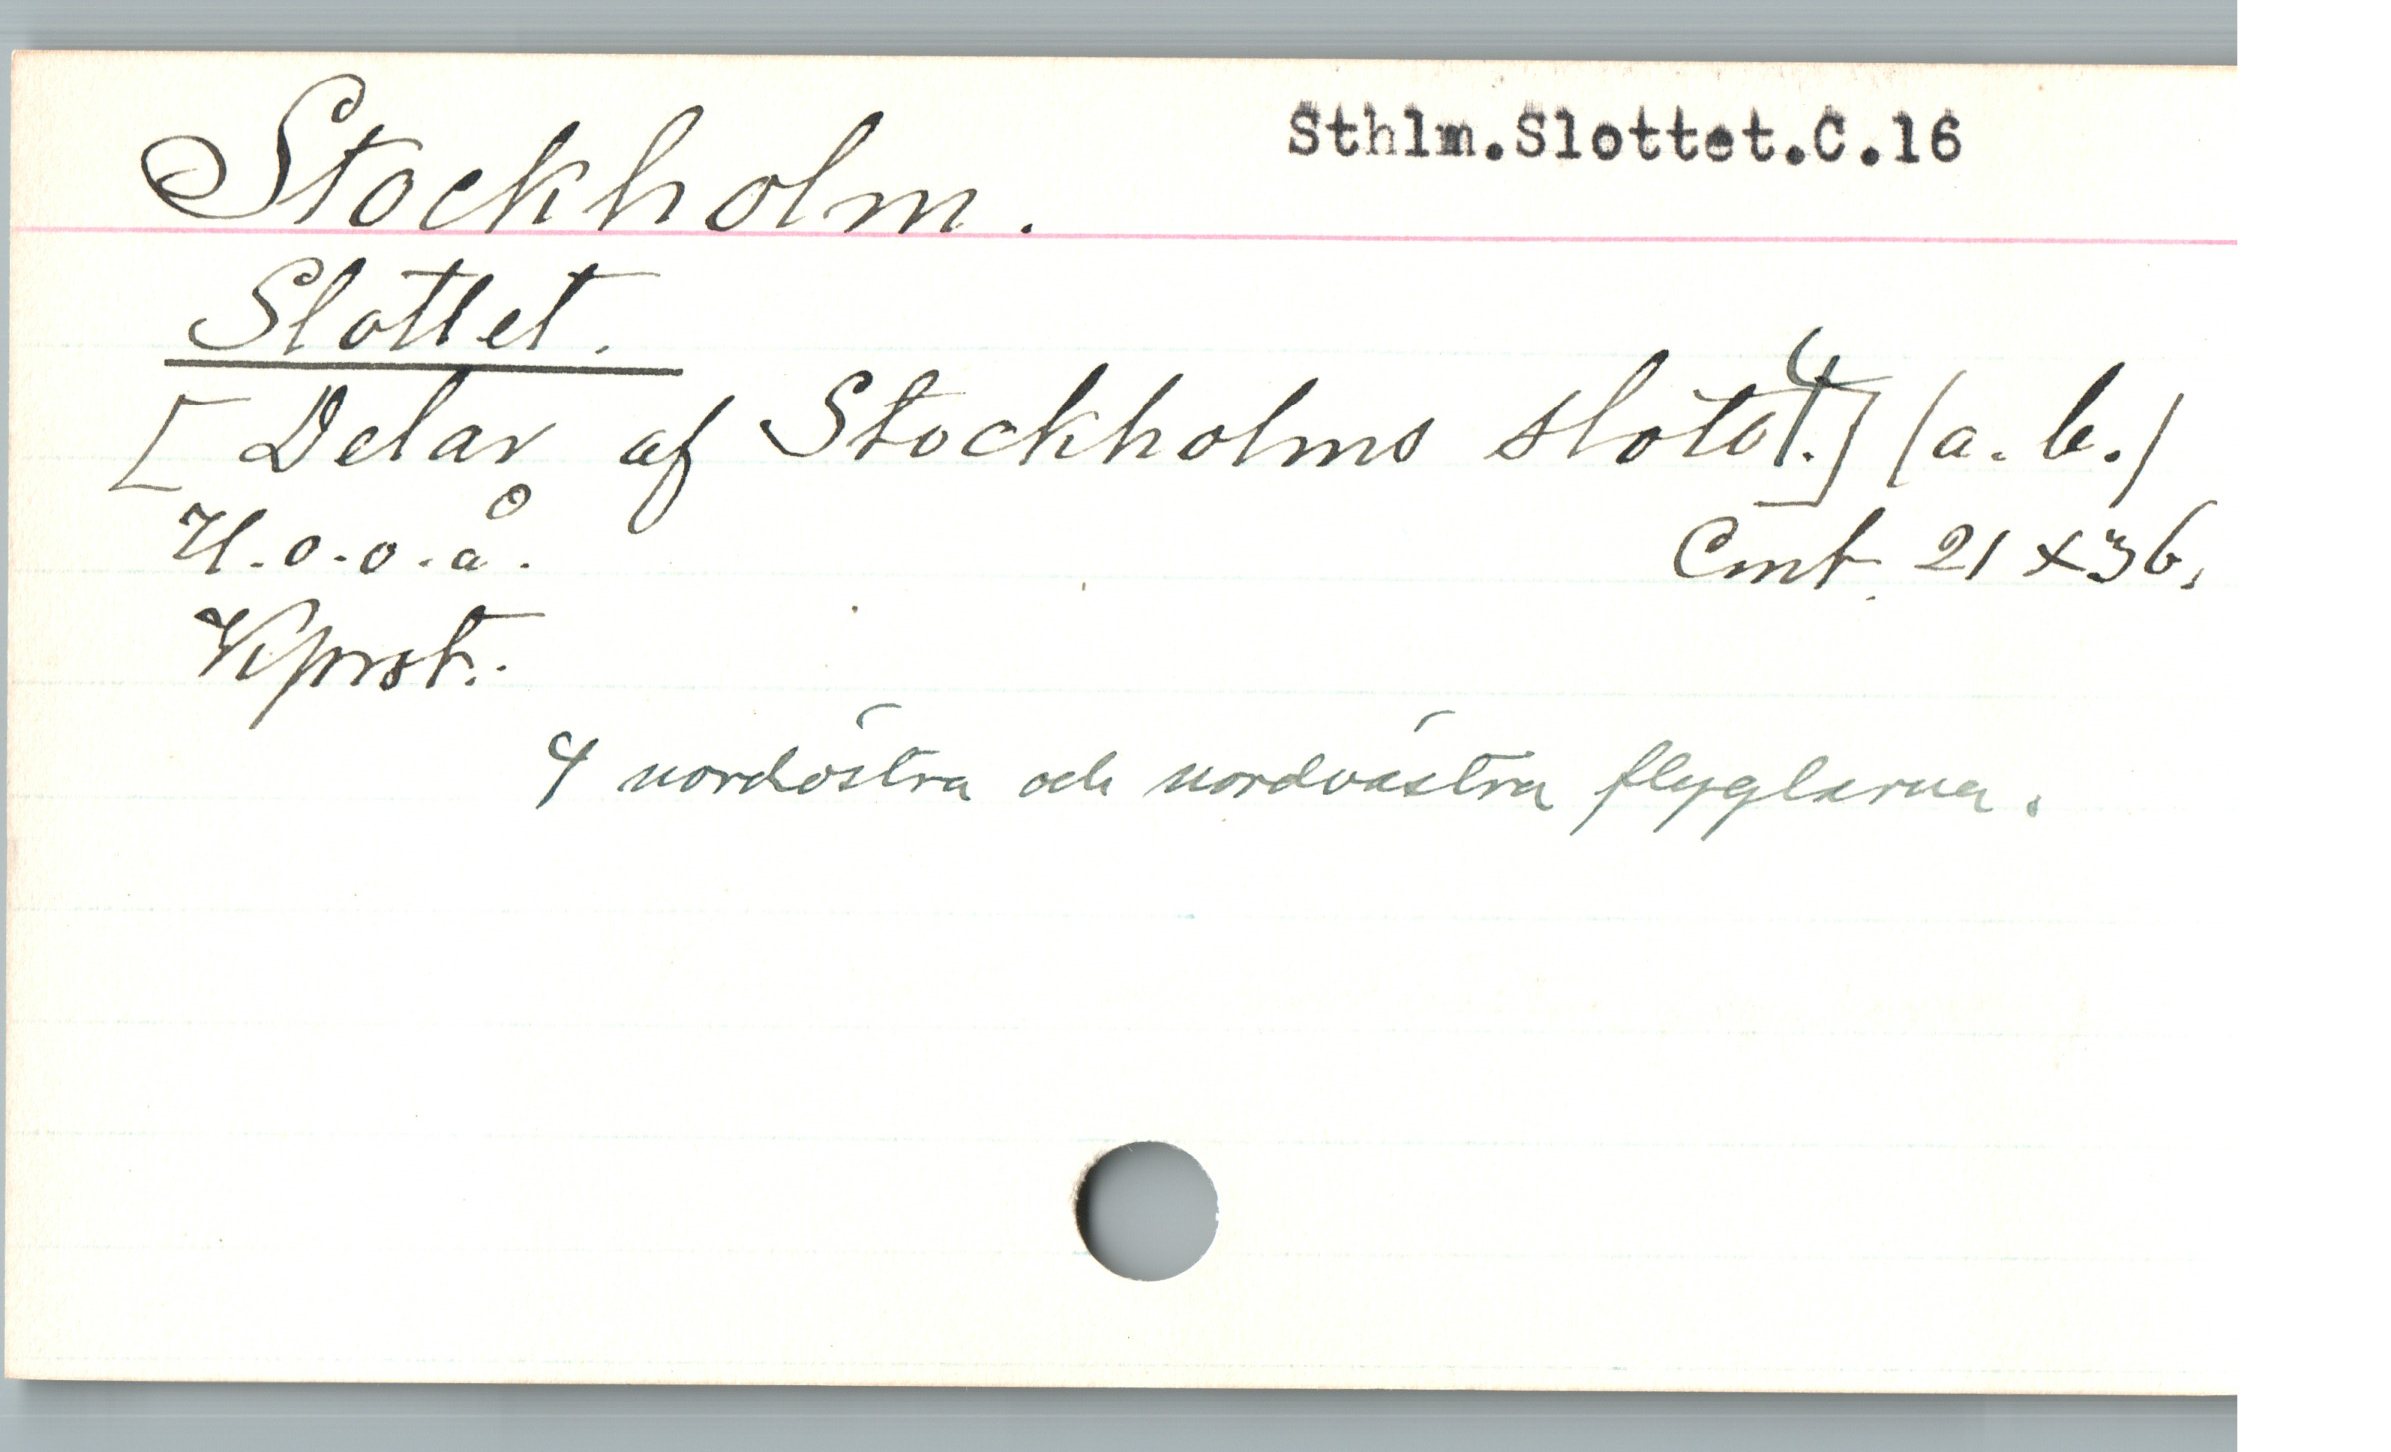 Stockholm.
Sthlm.Slottet.C.16
Slottet.
[Delar af Stockholms slott.] (a. b.)
H.o.o.å.
Cmt. 21 x 36.
Kprst.
nordöstra och nordvästra flyglarna.